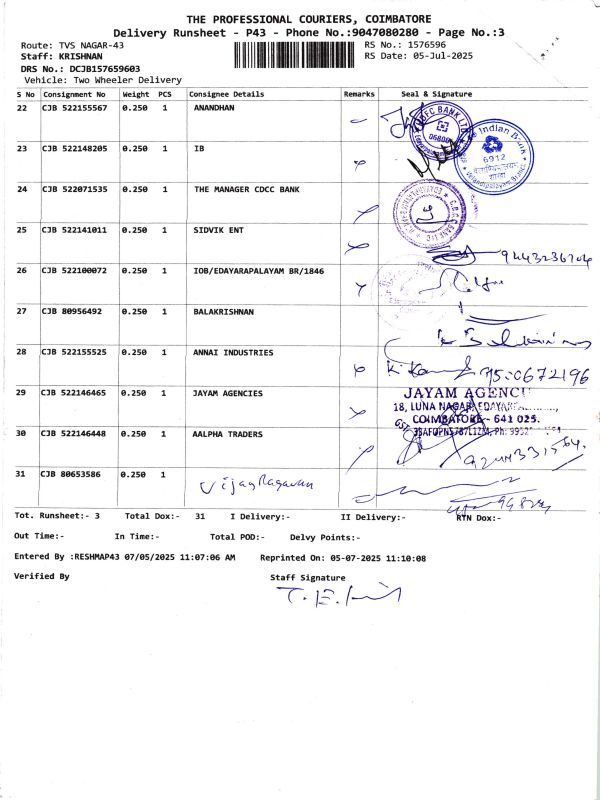 THE PROFESSIONAL COURIERS, COIMBATORE
Delivery Runsheet - P43 - Phone No.:9047080280 - Page No.:3
Route: TVS NAGAR-43 RS No.: 1576596
Staff: KRISHNAN RS Date: 05-Jul-2025
DRS No.: DCJB157659603
Vehicle: Two Wheeler Delivery
S No Consignment No Weight PCS Consignee Details Remarks Seal & Signature
22 CJB 522155567 0.250 1 ANANDHAN
HDFC BANK LTD
23 CJB 522148205 0.250 1 IB
Indian Bank
6912
24 CJB 522071535 0.250 1 THE MANAGER CDCC BANK
25 CJB 522141011 0.250 1 SIDVIK ENT
9443236704
26 CJB 522100072 0.250 1 IOB/EDAYARAPALAYAM BR/1846
27 CJB 80956492 0.250 1 BALAKRISHNAN
28 CJB 522155525 0.250 1 ANNAI INDUSTRIES
29 CJB 522146465 0.250 1 JAYAM AGENCIES
JAYAM AGENC
18, LUNA NAGAR, EDAYAR
COIMBATORE - 641 025.
30 CJB 522146448 0.250 1 AALPHA TRADERS
31 CJB 80653586 0.250 1 Vijay Ragavan
Tot. Runsheet:- 3 Total Dox:- 31 I Delivery:- II Delivery:- RTN Dox:-
Out Time:- In Time:- Total POD:- Delvy Points:-
Entered By :RESHMAP43 07/05/2025 11:07:06 AM Reprinted On: 05-07-2025 11:10:08
Verified By Staff Signature